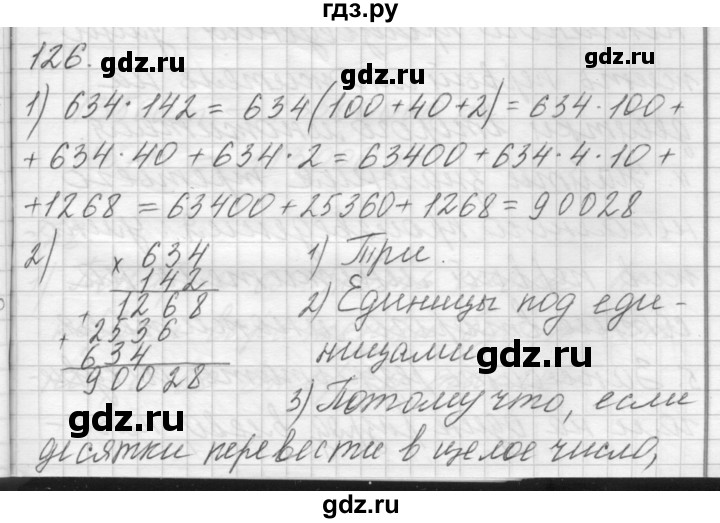 гдз.ру
126. gdz.ru gdz.ru
1) 634·142 = 634(100+40+2) = 634·100+
+634·40+634·2=63400+634·4·10+
+1268=63400+25360+1268=90028
2) × 634
142
+ 1268
+ 2536
634
90028
1) Три.
2) Единицы под еди-
ницами gdz.ru
gdz.ru
3) Потому что, если
десятки перевести в целое число,
gdz.ru